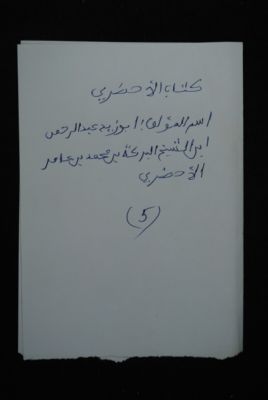 كتاب الأخضري
اسم المؤلف: ابو زيد عبد الرحمن
ابن الشيخ البركة بن محمد بن عامر
الأخضري
(5)